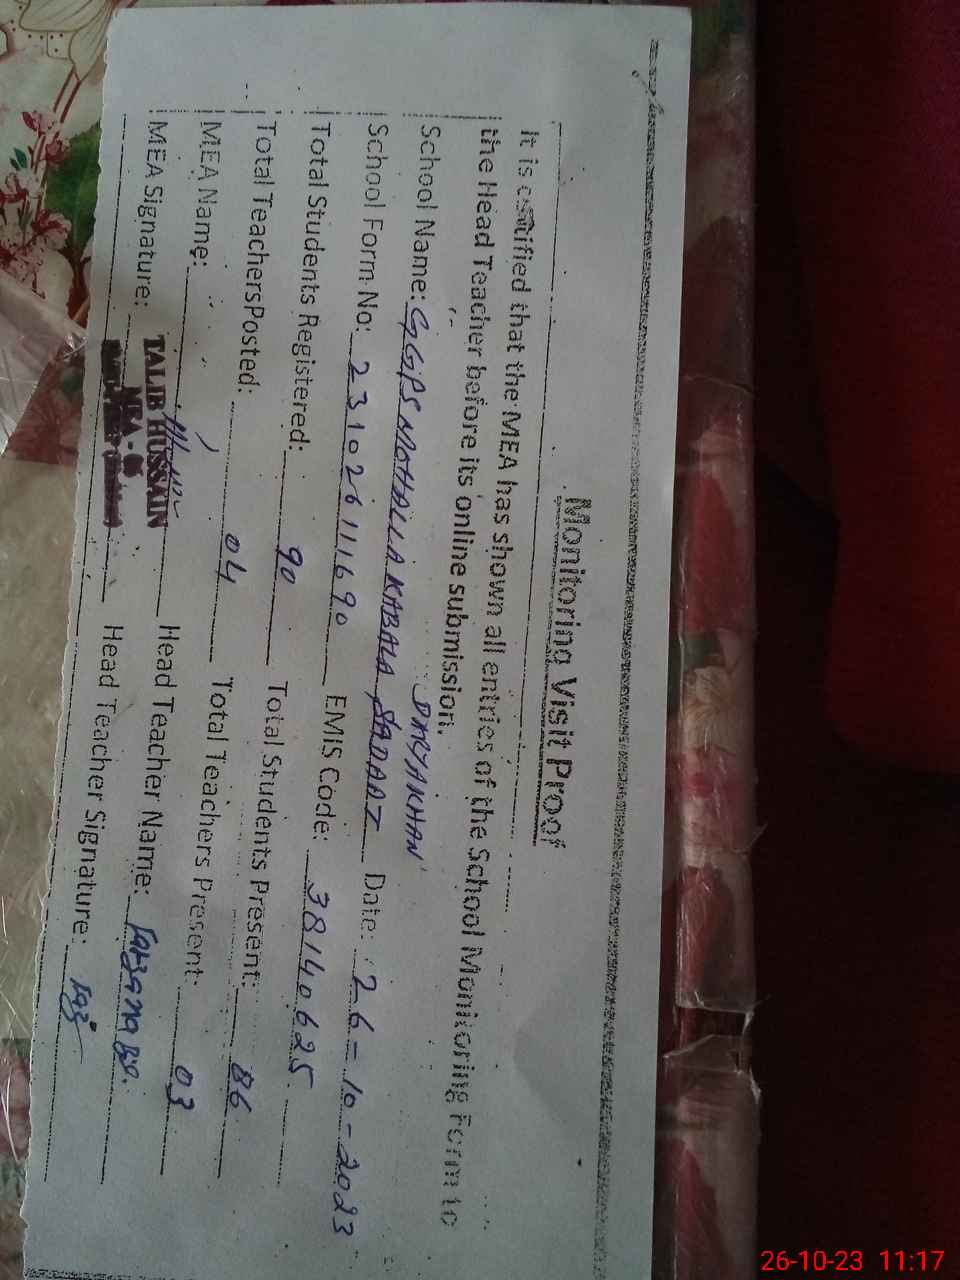 Monitoring Visit Proof
It is certified that the MEA has shown all entries of the School Monitoring Form to
the Head Teacher before its online submission.
DARYAKHAN
School Name: GGPS MOHALLA KABALA SADAAT Date: 26-10-2023
School Form No: 231026111690 EMIS Code: 38140625
Total Students Registered: 90 Total Students Present: 86
Total Teachers Posted: 04 Total Teachers Present: 03
MEA Name: Head Teacher Name: Farzana Bibi
MEA Signature: Head Teacher Signature:
TALIB HUSSAIN
MEA -
26-10-23 11:17